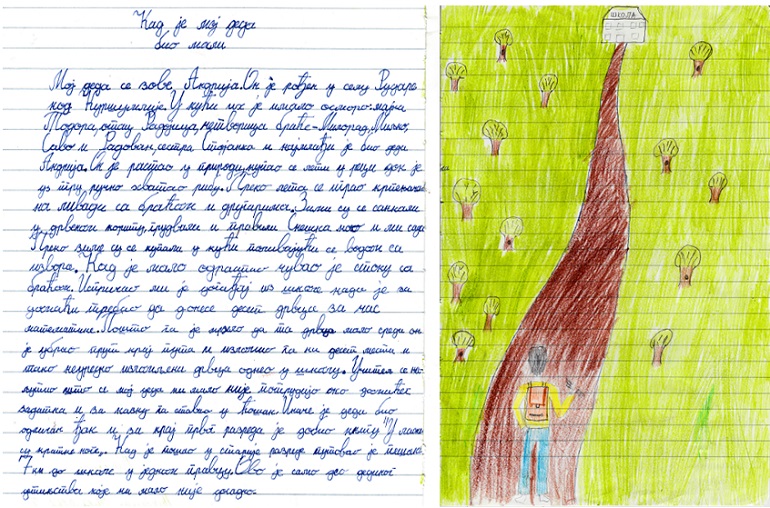 Кад је мој деда
био мали
Мој деда се зове Андрија. Он је рођен у селу Рударе
код Куршумлије. У кући их је имало осморо: мајка
Тодора, отац Радојица, четворица браће - Милорад, Милко,
Саво и Радован, сестра Стојанка и најмлађи је био деда
Андрија. Он је растао у природи, купао се лети у реци док је
уз пру ручно хватао рибу. Преко лета се играо крпењачом
на ливади са браћом и другарима. Зими су се санкали
у дрвеном кориту, грудвали и правили Снешка као и ми сада.
Преко зиме су се купали у кући поливајући се водом са
извора. Кад је мало одрастао чувао је стоку са
браћом. Испричао ми је догађај из школе када је за
домаћи требао да донесе десет дрвца за час
математике. Пошто га је мрзело да та дрвца мало среди он
је убрао прут крај пута и изломио га на десет места и
тако неуредно изломљени дрвца однео у школу. Учитељ се на-
љутио што се мој деда ни мало није потрудио око домаћег
задатка и за казну га ставио у ћошак. Иначе је деда био
одличан ђак и за крај првог разреда је добио књигу "У лажи
су кратке ноге". Кад је пошао у старије разреде путовао је пешке
7 km до школе у једном правцу. Ово је само део дединог
детињства које ни мало није лагано.
ШКОЛА